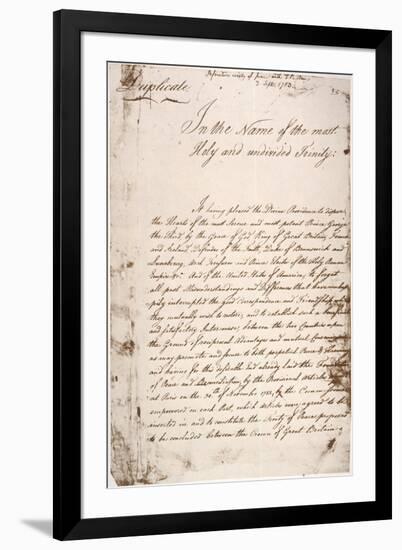 Definitive treaty of peace with
3 Sept. 1783.
Duplicate
In the Name of the most
Holy and undivided Trinity:
It having pleased the Divine Providence to dispose
the Hearts of the most Serene and most potent Prince George
the third, by the Grace of God King of Great Britain, France
and Ireland, Defender of the Faith, Duke of Brunswick and
Lunebourg, Arch Treasurer and Prince Elector of the Holy Roman
Empire &c. And of the United States of America, to forget
all past Misunderstandings and Differences that have unhap-
pily interrupted the good Correspondence and Friendship which
they mutually wish to restore; and to establish such a
and satisfactory Intercourse between the two Countries upon
the Ground of reciprocal Advantages and mutual Convenience
as may promote and secure to both perpetual Peace & Harmony
and having for this desirable End already laid the Foundation
of Peace and Reconciliation by the Provisional Articles
at Paris on the 30th of Novembr 1782, by the Commissioners
empowered on each Part, which Articles were agreed to be
inserted in and to constitute the Treaty of Peace proposed
to be concluded between the Crown of Great Britain